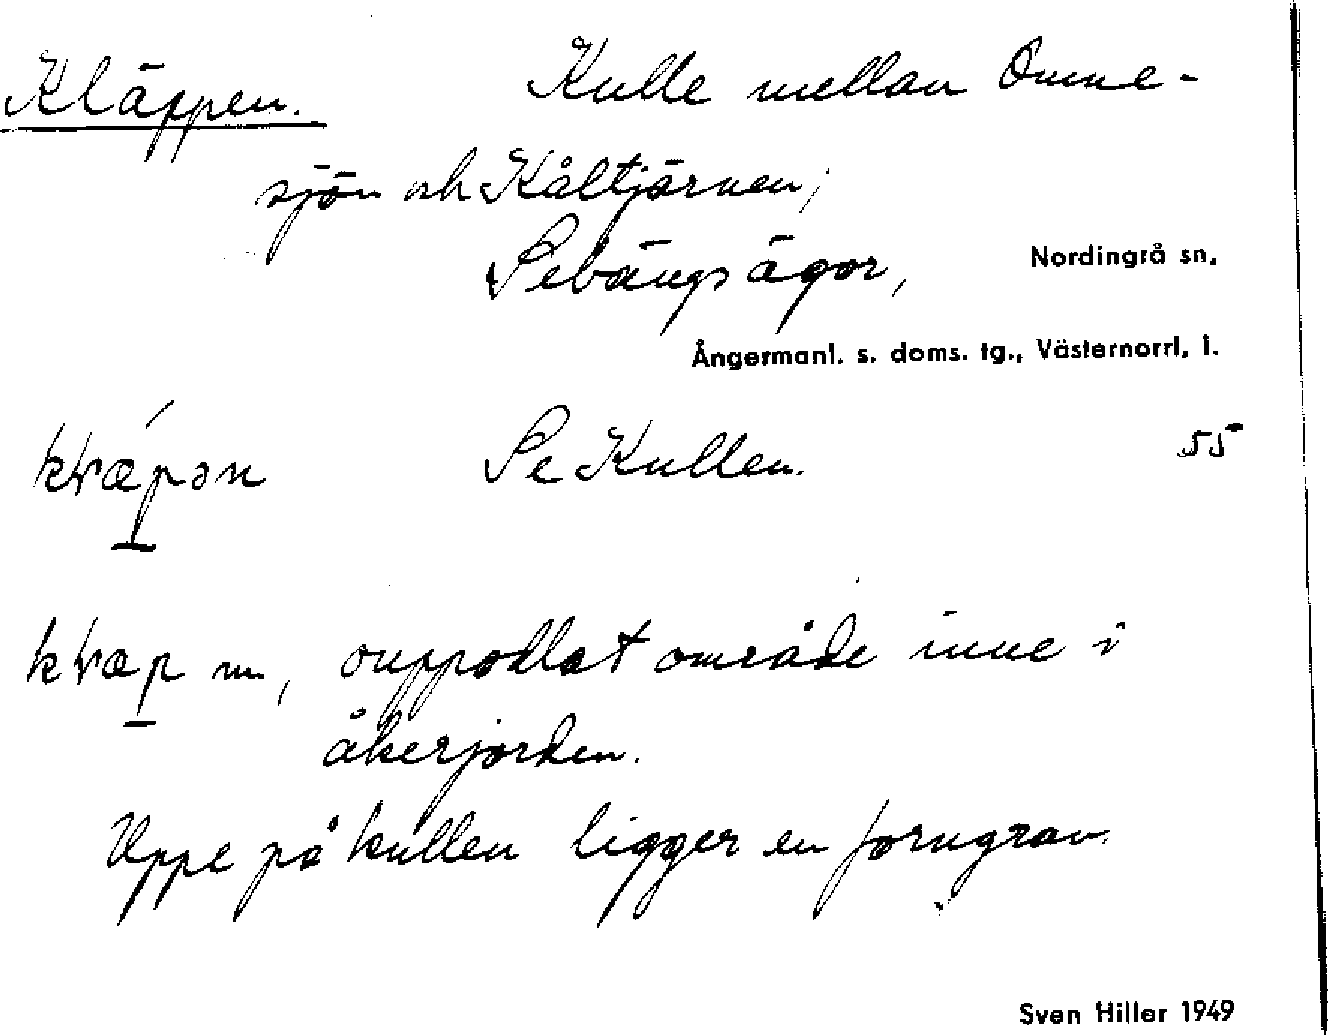 Kläppen. Kulle mellan Omne-
sjön och Kåltjärnen;
Sebängs ägor, Nordingrå sn.
Ångermanl. s. doms. tg., Västernorrl. l.
Se Kullen. 55
m, ouppodlat område inne i
åkerjorden.
Uppe på kullen ligger en forngrav.
Sven Hiller 1949